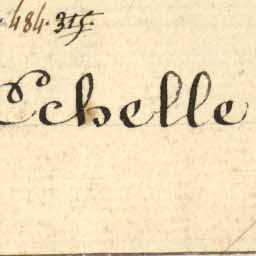 484. 315.
Echelle